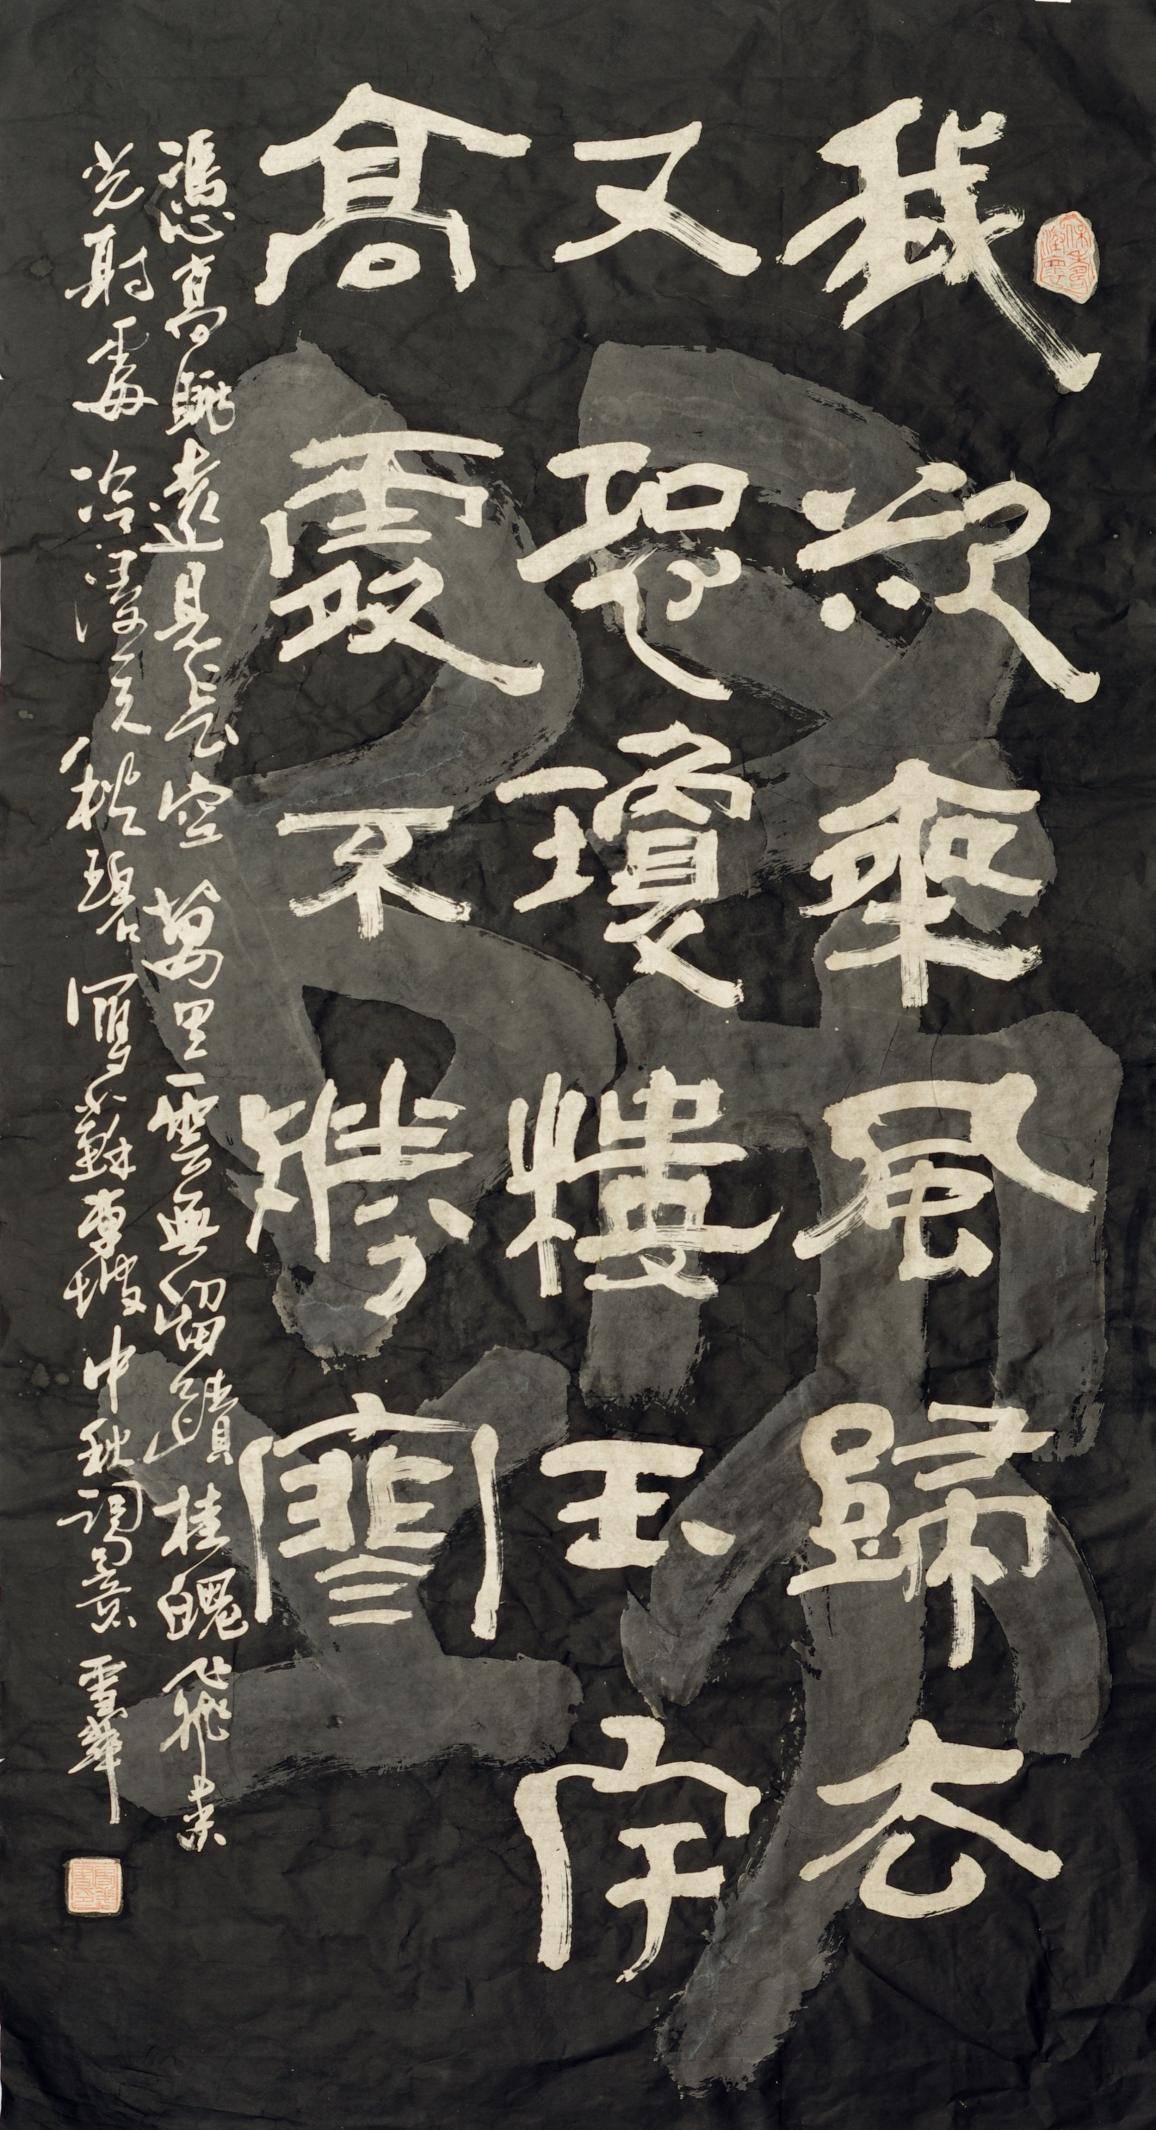 我欲乘風歸去
又恐瓊樓玉宇
高處不勝寒
憑高眺遠見長空萬里雲無留蹟桂魄飛來
光射處冷浸一天秋碧寫蘇東坡中秋詞意 雪華